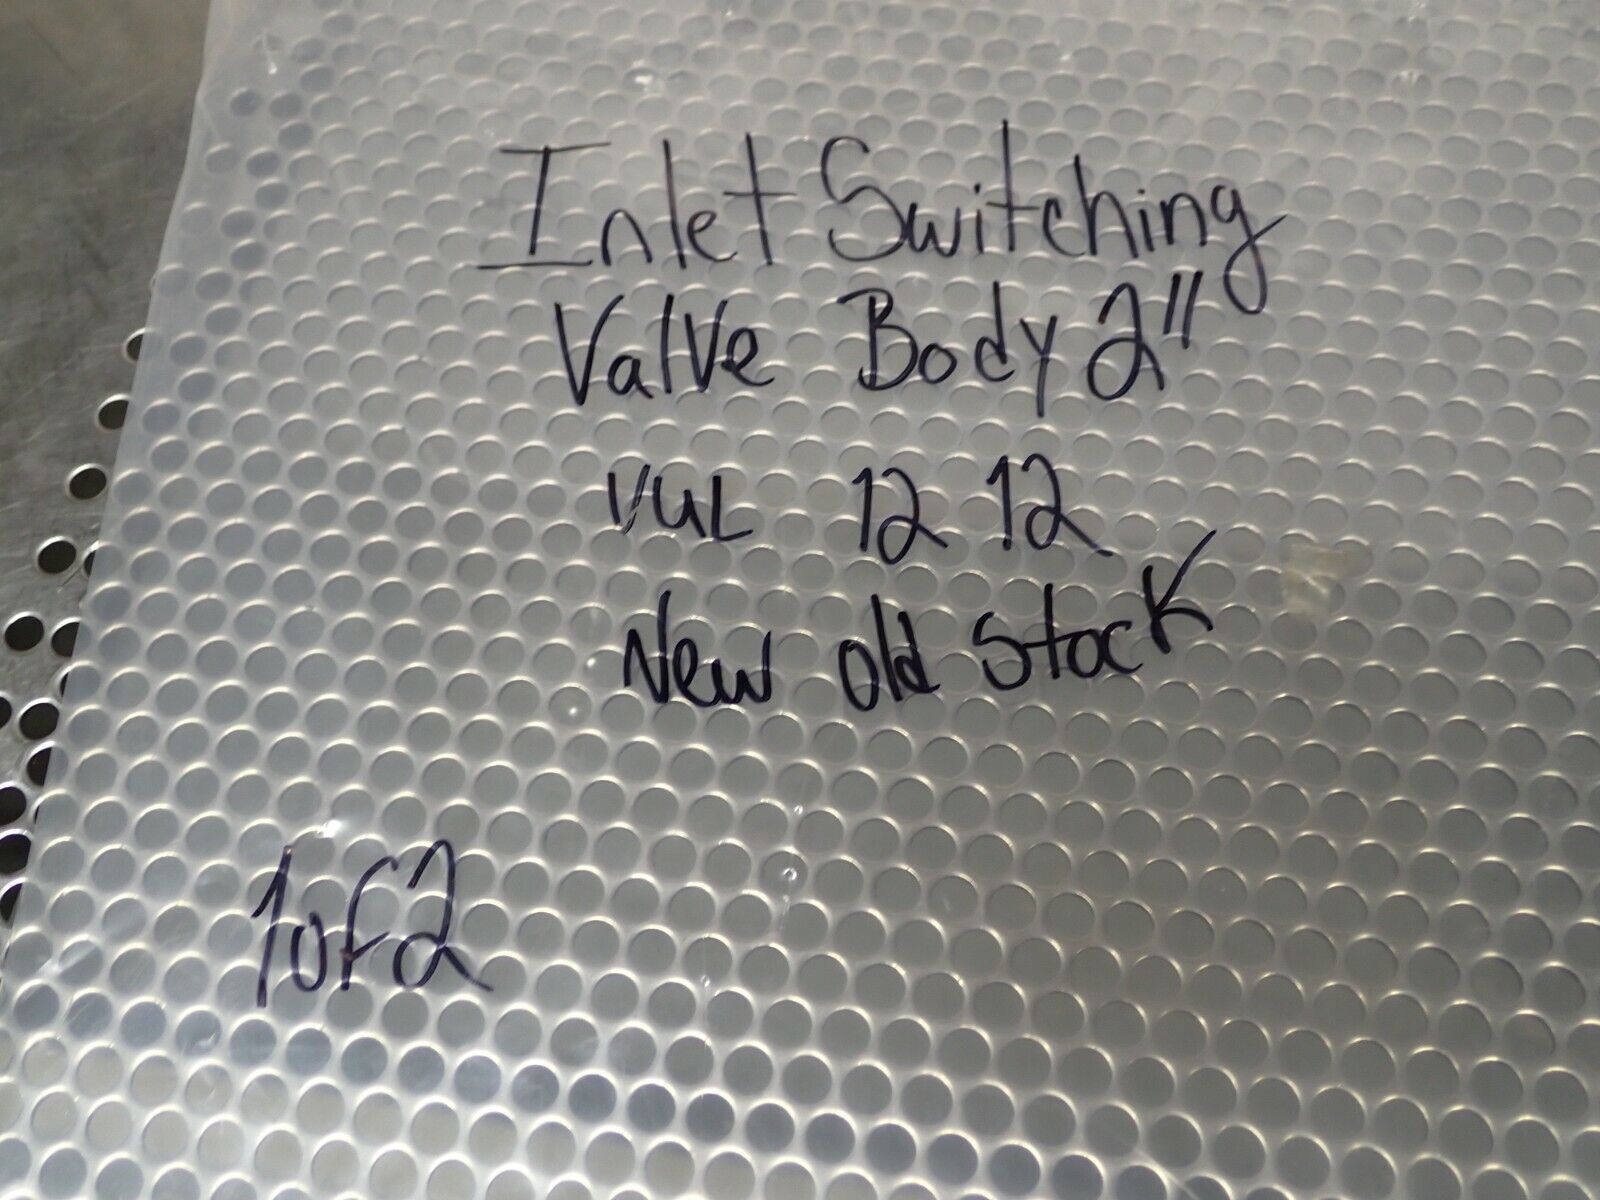 Inlet Switching
Valve Body 2"
VUL 12 12
New old Stock
1 of 2